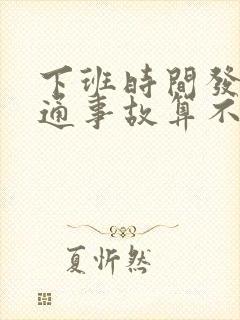 下班時間發
通事故算不
夏忻然